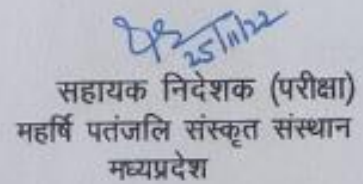 25/11/22
सहायक निदेशक (परीक्षा)
महर्षि पतंजलि संस्कृत संस्थान
मध्यप्रदेश